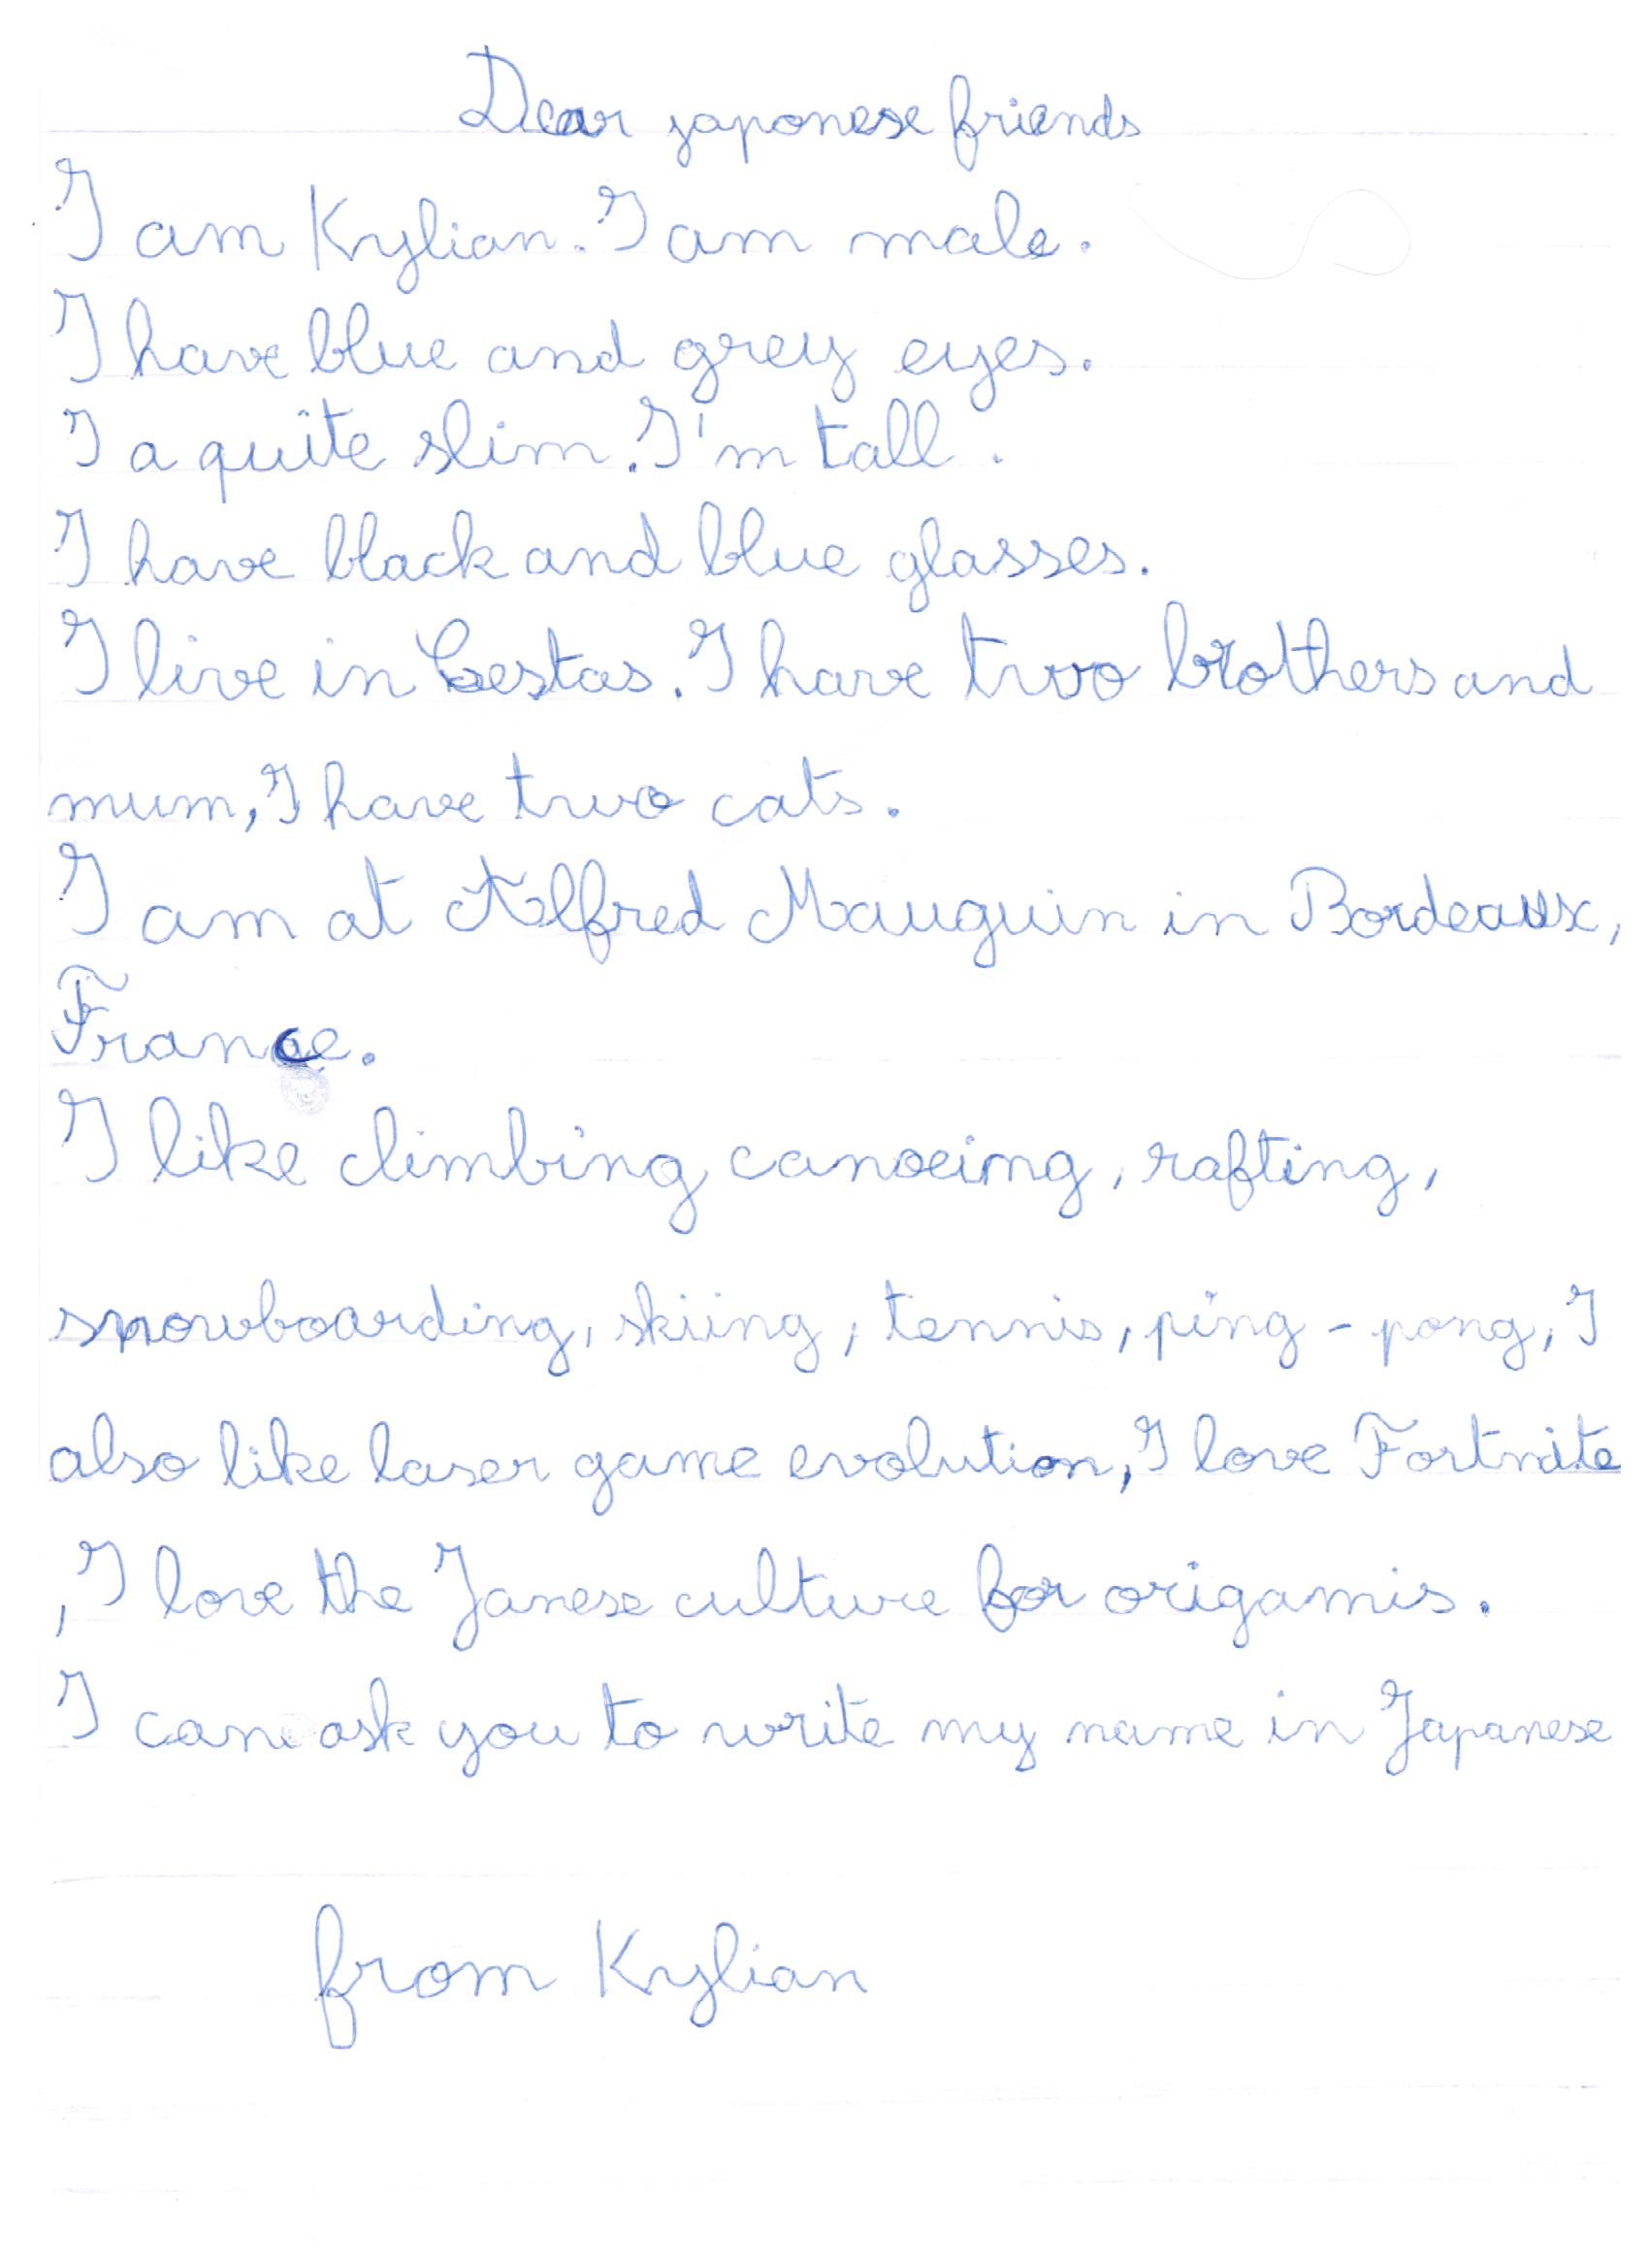 Dear japonese friends
I am Kylian. I am male.
I have blue and grey eyes.
I a quite slim. I'm tall.
I have black and blue glasses.
I live in Cestas. I have two brothers and
mum, I have two cats.
I am at Alfred Mauguin in Bordeaux,
France.
I like climbing canoeing, rafting,
snowboarding, skiing, tennis, ping-pong, I
also like laser game evolution, I love Fortnite
, I love the Janese culture for origamis.
I can ask you to write my name in Japanese
from Kylian